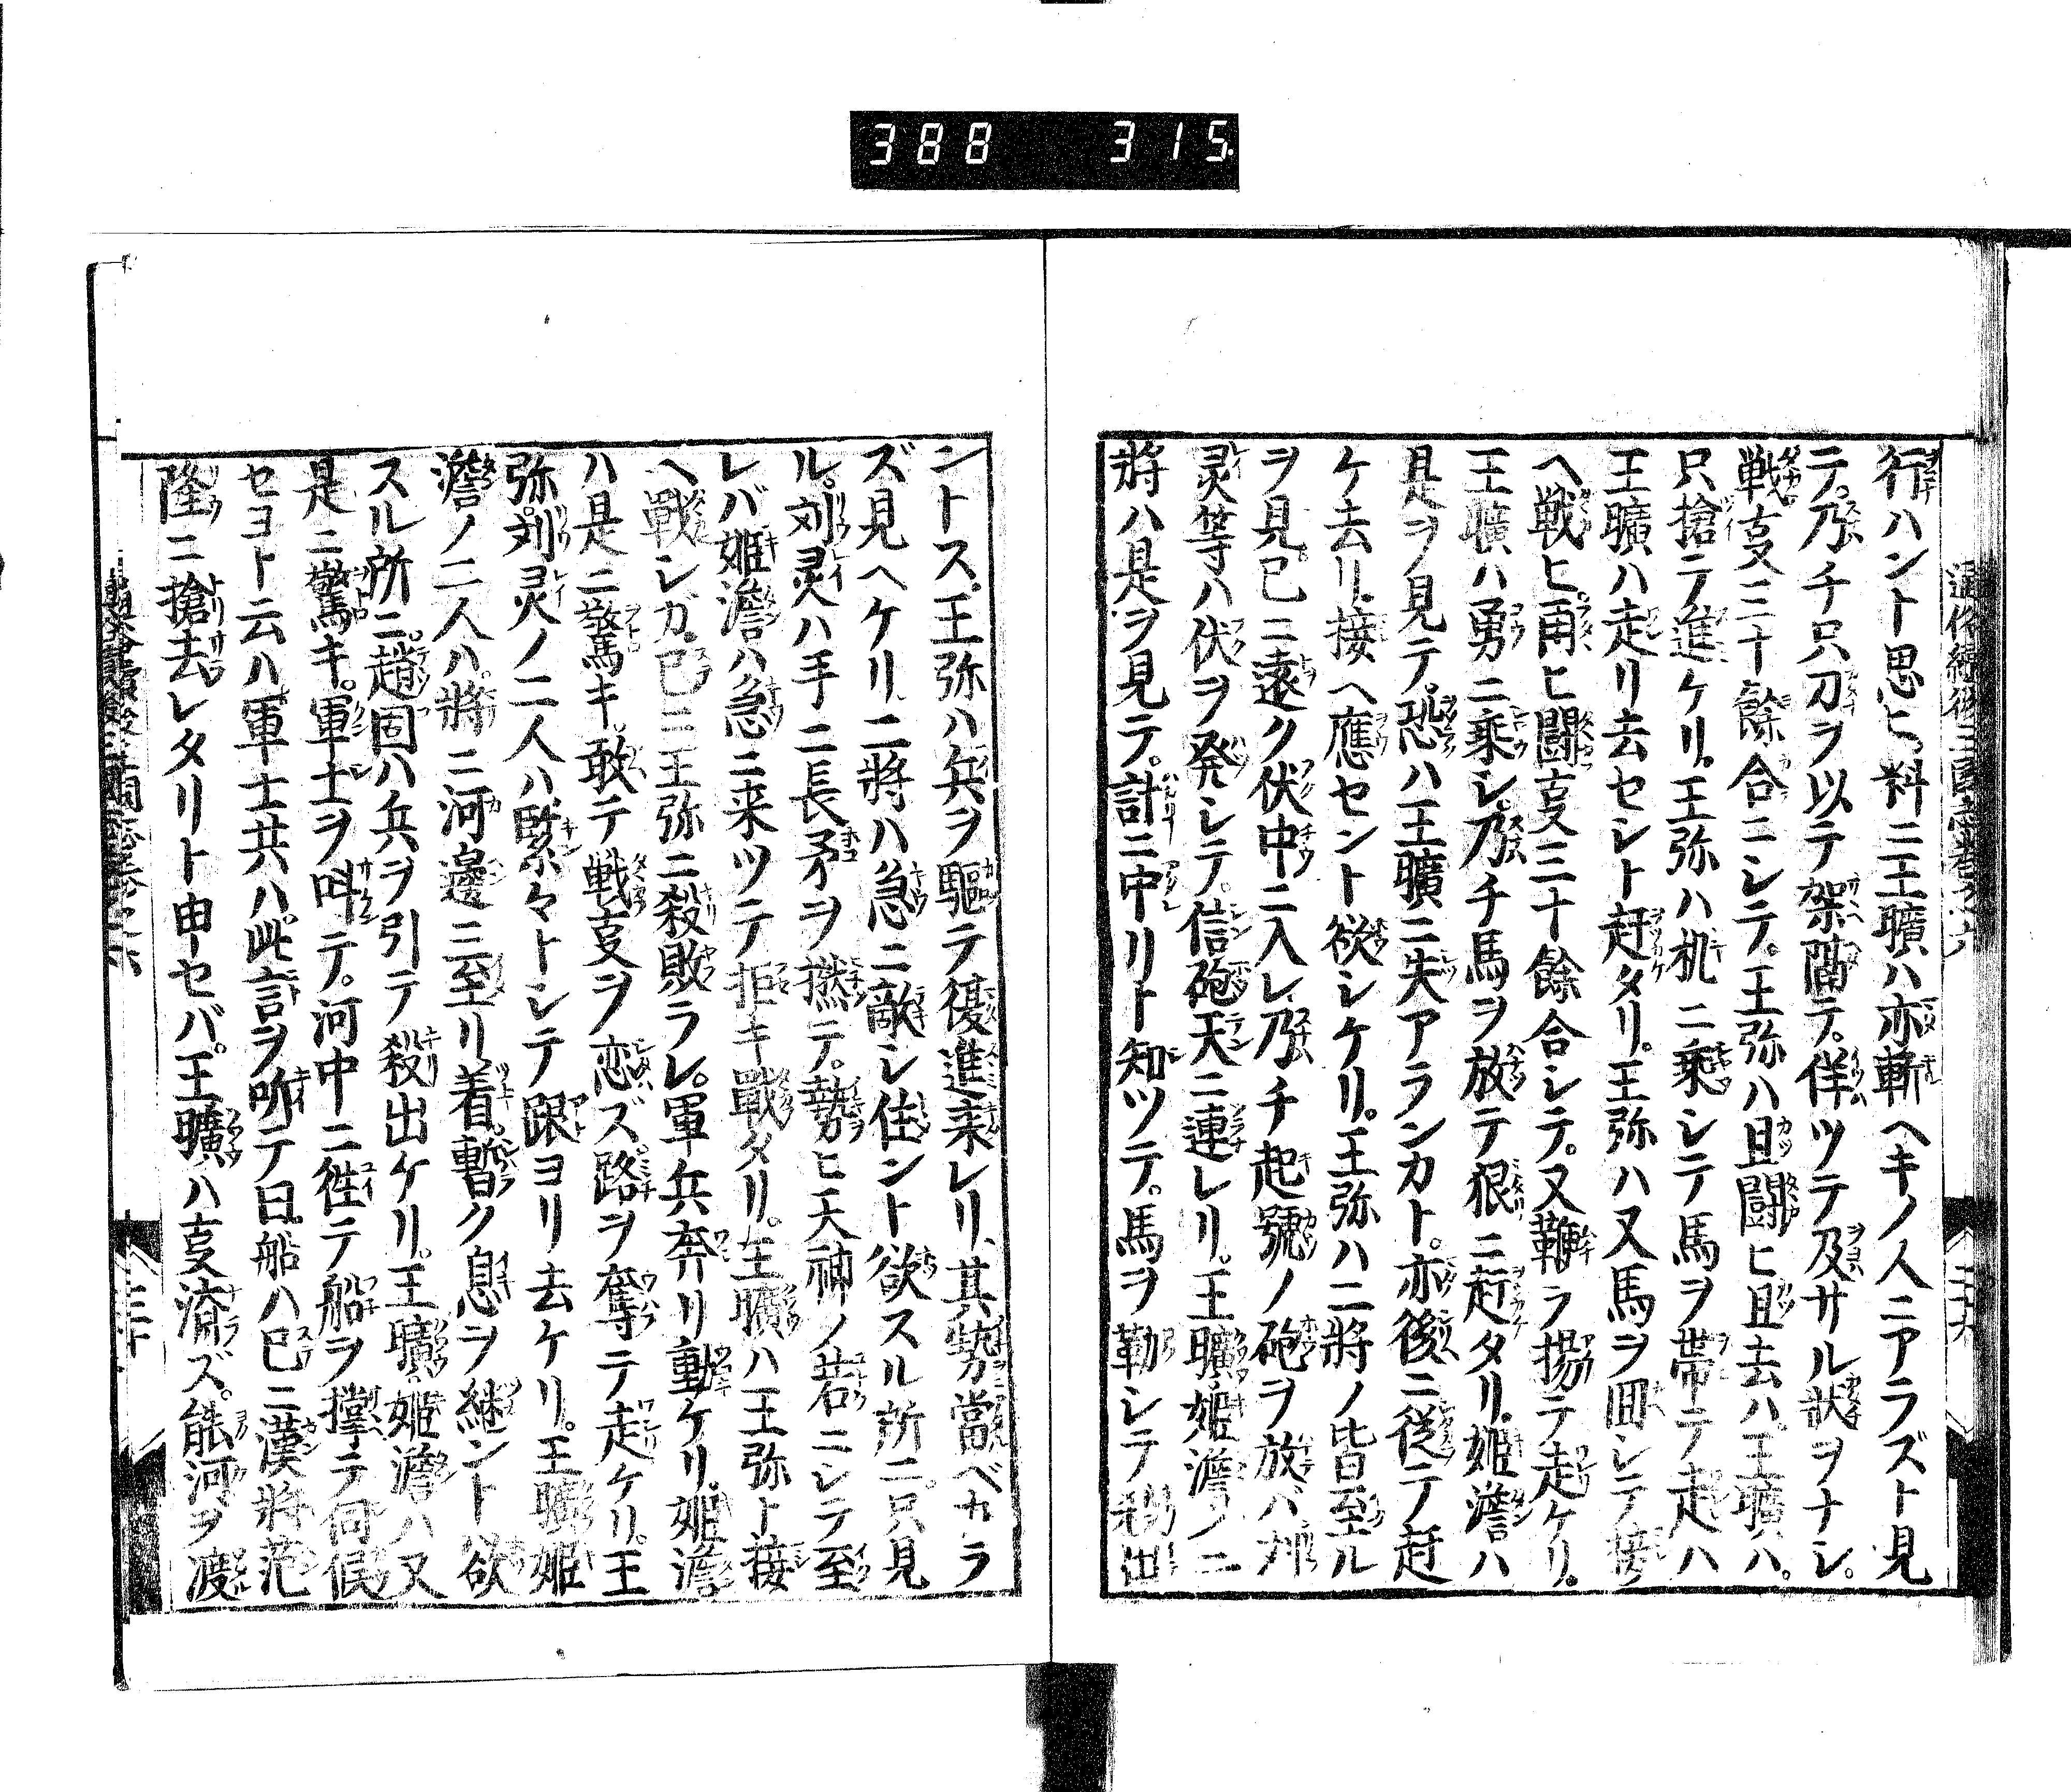 388 315
行ハント思ヒ。料ニ王曠ハ亦斬ヘキノ人ニアラズト見
テ。乃チ只刀ヲ以テ架隔テ。佯ツテ及サル状ヲナシ。
戦叓三十餘合ニシテ。王弥ハ且闘ヒ且去ハ。王曠ハ。
只搶テ進ケリ。王弥ハ机ニ乘シテ馬ヲ帯テ走ハ
王曠ハ走リ去セシト赶タリ。王弥ハ又馬ヲ囬シテ接
ヘ戦ヒ。再ヒ闘叓三十餘合シテ。又鞭ヲ揚テ走ケリ。
王曠ハ勇ニ乘シ。乃チ馬ヲ放テ狠ニ赶タリ。姫澹ハ
是ヲ見テ。恐ハ王曠ニ失アランカト。亦後ニ従テ赶
ケ去リ。接ヘ應セント欲シケリ。王弥ハ二將ノ皆至ル
ヲ見。已ニ遠ク伏中ニ入レ。乃チ起號ノ砲ヲ放バ
灵等ハ伏ヲ発シテ。信砲天ニ連レリ。王曠姫澹ノ二
將ハ是ヲ見テ。計ニ中リト知ツテ。馬ヲ勒シテ
ントス。王弥ハ兵ヲ驅テ復進来レリ。其勢當ベカラ
ズ見ヘケリ。二將ハ急ニ敵シ住ント欲スル所ニ。只見
ル。刘灵ハ手ニ長矛ヲ撚テ。勢ヒ天神ノ若ニシテ至
レバ。姫澹ハ急ニ来ツテ拒キ戰タリ。王曠ハ王弥ト接
ヘ戰シガ。已ニ王弥ニ殺敗ラレ。軍兵奔リ動ケリ。姫澹
ハ是ニ驚キ。敢テ戦叓ヲ恋ズ。路ヲ奪テ走ケリ。王
弥刘灵ノ二人ハ緊々トシテ跟ヨリ去ケリ。王曠姫
澹ノ二人ハ。將ニ河邊ニ至リ着。暫ク息ヲ継ント欲
スル所ニ。趙固ハ兵ヲ引テ殺出ケリ。王曠姫澹ハ又
是ニ驚キ。軍士ヲ呌テ。河中ニ徃テ船ヲ撑テ伺候
セヨト云ハ軍士共ハ。此言ヲ听テ曰。船ハ已ニ漢將范
隆ニ搶去レタリト申セバ。王曠ハ叓濟ズ。能河ヲ渡